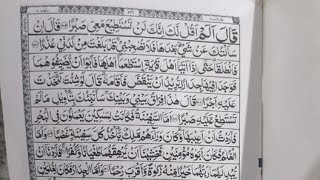 قَالَ اَلَمْ اَقُلْ لَّكَ اِنَّكَ لَنْ تَسْتَطِيْعَ مَعِيَ صَبْرًا قَالَ اِنْ
سَاَلْتُكَ عَنْ شَيْءٍۭ بَعْدَهَا فَلَا تُصٰحِبْنِيْ قَدْ بَلَغْتَ مِنْ لَّدُنِّيْ عُذْرًا
فَانْطَلَقَا حَتّٰۤى اِذَاۤ اَتَيَاۤ اَهْلَ قَرْيَةِ ِۨاسْتَطْعَمَاۤ اَهْلَهَا فَاَبَوْا اَنْ يُّضَيِّفُوْهُمَا
فَوَجَدَا فِيْهَا جِدَارًا يُّرِيْدُ اَنْ يَّنْقَضَّ فَاَقَامَهٗ قَالَ لَوْ شِئْتَ لَتَّخَذْتَ
عَلَيْهِ اَجْرًا قَالَ هٰذَا فِرَاقُ بَيْنِيْ وَبَيْنِكَ سَاُنَبِّئُكَ بِتَاْوِيْلِ مَا لَمْ
تَسْتَطِعْ عَّلَيْهِ صَبْرًا اَمَّا السَّفِيْنَةُ فَكَانَتْ لِمَسٰكِيْنَ يَعْمَلُوْنَ فِي الْبَحْرِ
فَاَرَدْتُّ اَنْ اَعِيْبَهَا وَكَانَ وَرَآءَهُمْ مَّلِكٌ يَّاْخُذُ كُلَّ سَفِيْنَةٍ غَصْبًا وَاَمَّا
الْغُلٰمُ فَكَانَ اَبَوٰهُ مُؤْمِنَيْنِ فَخَشِيْنَاۤ اَنْ يُّرْهِقَهُمَا طُغْيَانًا وَّكُفْرًا فَاَرَدْنَاۤ اَنْ
يُّبْدِلَهُمَا رَبُّهُمَا خَيْرًا مِّنْهُ زَكٰوةً وَّاَقْرَبَ رُحْمًا وَاَمَّا الْجِدَارُ فَكَانَ